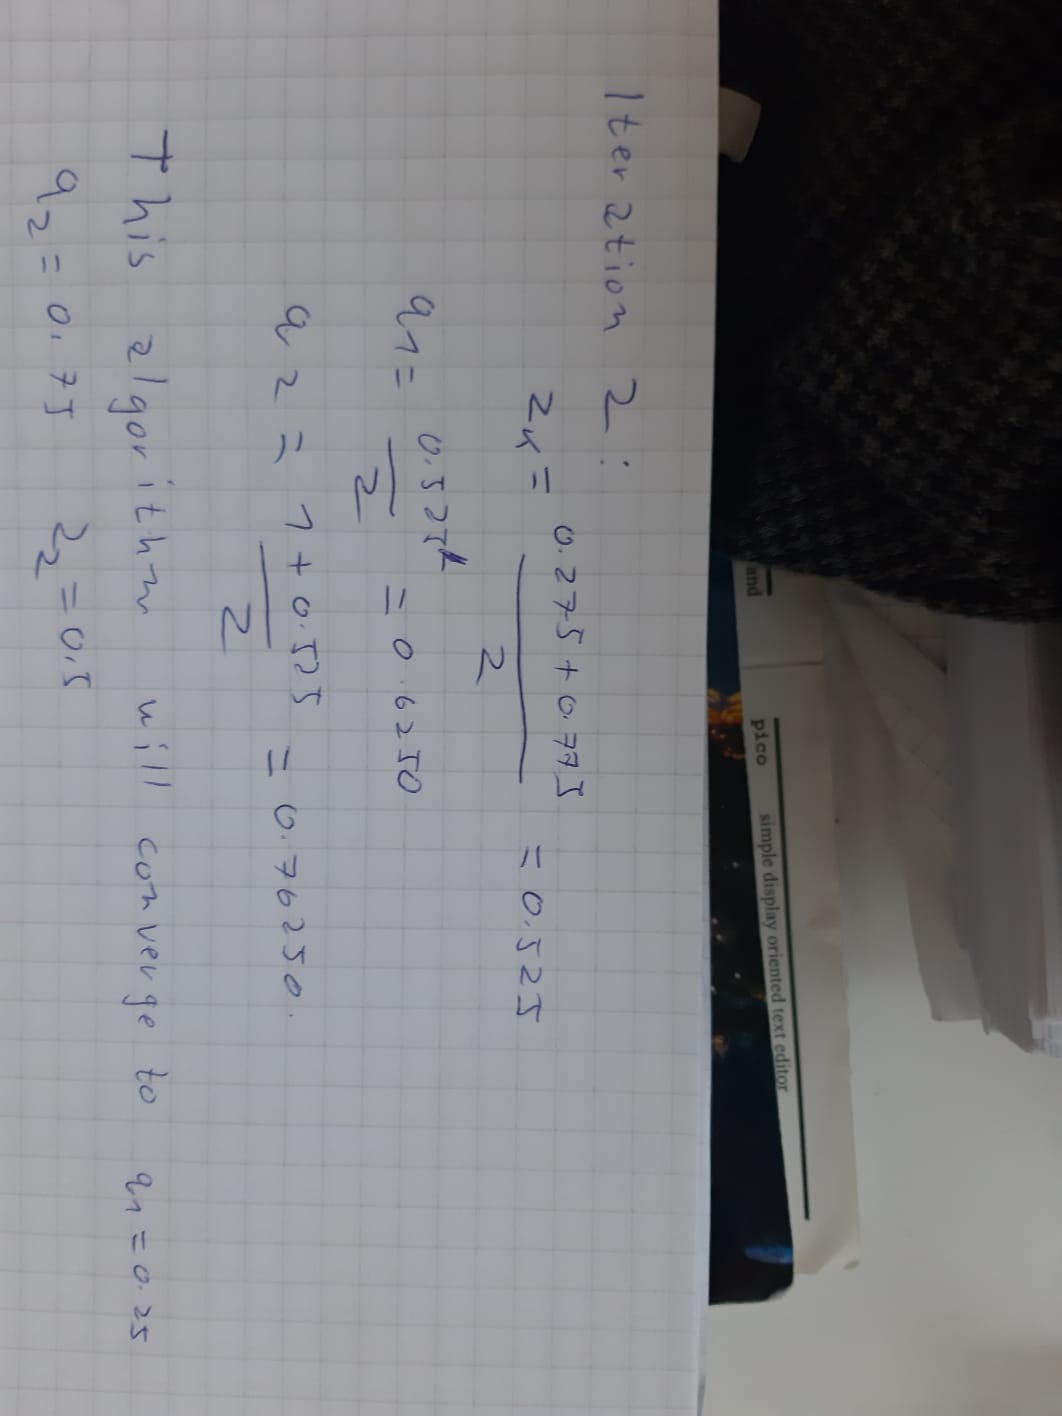 and
pico simple display oriented text editor
Iteration 2:
z_K = (0.275 + 0.775) / 2 = 0.525
q_1 = 0.525 / 2 = 0.6250
q_2 = (1 + 0.525) / 2 = 0.76250.
This algorithm will converge to q_1 = 0.25
q_2 = 0.75 z_2 = 0.5